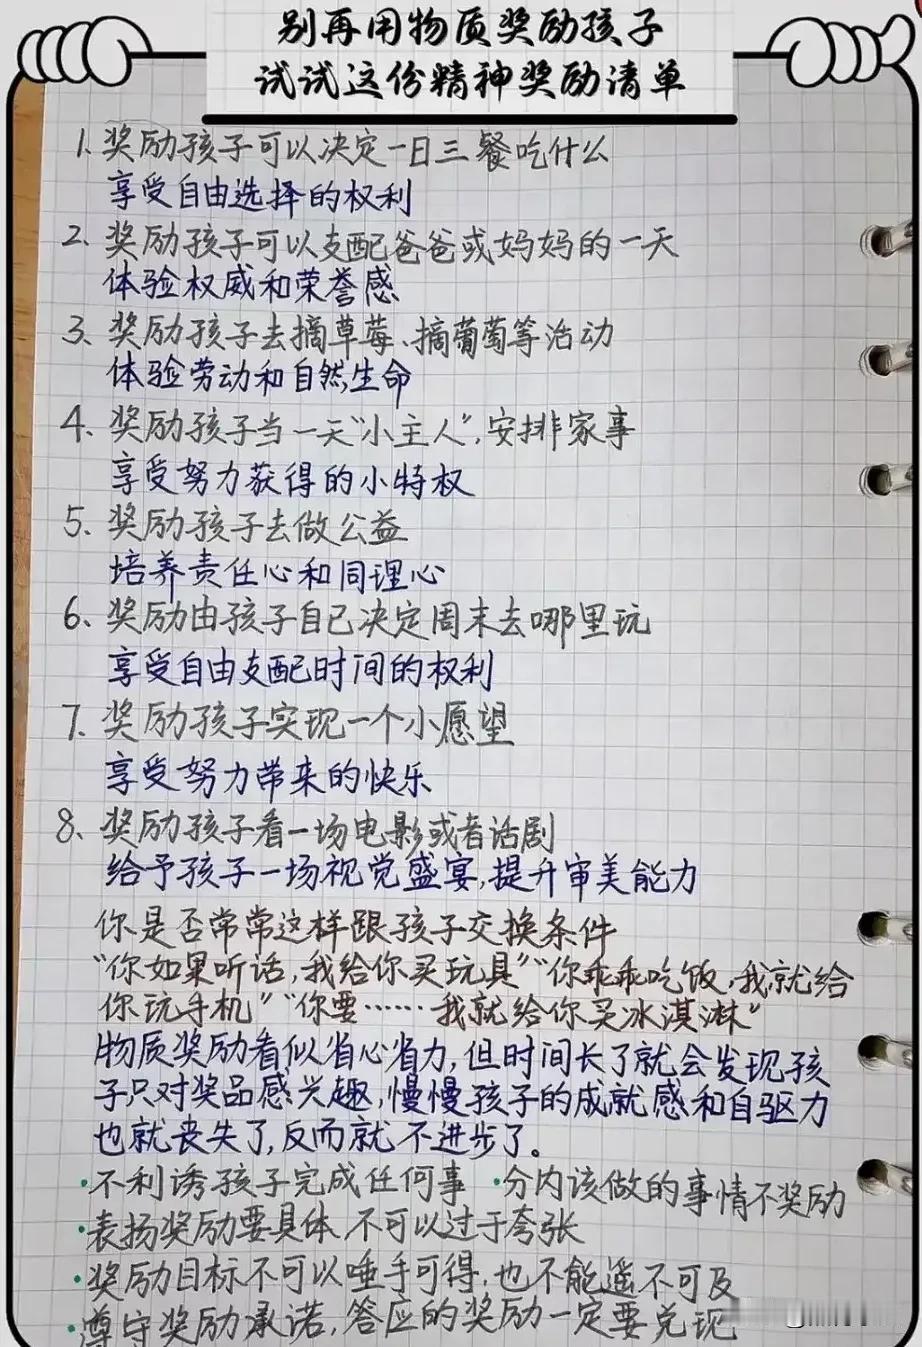 别再用物质奖励孩子
试试这份精神奖励清单
1、奖励孩子可以决定一日三餐吃什么
享受自由选择的权利
2、奖励孩子可以支配爸爸或妈妈的一天
体验权威和荣誉感
3、奖励孩子去摘草莓、摘葡萄等活动
体验劳动和自然,生命
4、奖励孩子当一天"小主人",安排家事
享受努力获得的小特权
5、奖励孩子去做公益
培养责任心和同理心
6、奖励由孩子自己决定周末去哪里玩
享受自由支配时间的权利
7、奖励孩子实现一个小愿望
享受努力带来的快乐
8、奖励孩子看一场电影或者话剧
给予孩子一场视觉盛宴,提升审美能力
你是否常常这样跟孩子交换条件
"你如果听话,我给你买玩具""你乖乖吃饭,我就给
你玩手机""你要……我就给你买冰淇淋"
物质奖励看似省心省力,但时间长了就会发现孩
子只对奖品感兴趣,慢慢孩子的成就感和自驱力
也就丧失了,反而就不进步了。
·不利诱孩子完成任何事 ·分内该做的事情不奖励
·表扬奖励要具体,不可以过于夸张
·奖励目标不可以唾手可得,也不能遥不可及
·遵守奖励承诺,答应的奖励一定要兑现